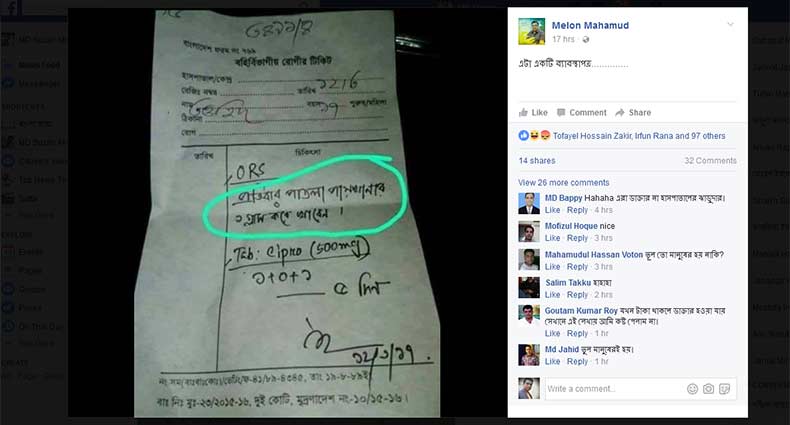 বাংলাদেশ ফরম নং ৭৬৯
বহির্বিভাগীয় রোগীর টিকিট
হাসপাতাল/কেন্দ্র
রেজিঃ নম্বর তারিখ
নাম বয়স ১৭ পুরুষ/মহিলা
ঠিকানা
রোগ
তারিখ চিকিৎসা
ORS
প্রতিবার পাতলা পায়খানার
১ গ্লাস করে খাবেন ।
Tab: Cipro (500mg)
১+০+১
৫ দিন
১২/৬/১৭
বাঃ নিঃ মুঃ-২৩/২০১৫-১৬, দুই কোটি, মুদ্রণাদেশ নং-১০/১৫-১৬।
Melon Mahamud
17 hrs ·
এটা একটি ব্যাবস্থাপত্র..............
Like Comment Share
Tofayel Hossain Zakir, Irfun Rana and 97 others
14 shares 32 Comments
View 26 more comments
MD Bappy Hahaha এরা ডাক্তার না হাসপাতালের ঝাড়ুদার।
Like · Reply · 4 hrs
Mofizul Hoque nice
Like · Reply · 3 hrs
Mahamudul Hassan Voton ভুল তো মানুষের হয় নাকি?
Like · Reply · 3 hrs
Salim Takku হাহাহা
Like · Reply · 2 hrs
Goutam Kumar Roy যখন টাকা থাকলে ডাক্তার হওয়া যায়
সেখানে এই লেখায় আমি কষ্ট পেলাম না।
Like · Reply · 1 hr
Md Jahid ভুল মানুষেরই হয়।
Like · Reply · 1 hr
Write a comment...